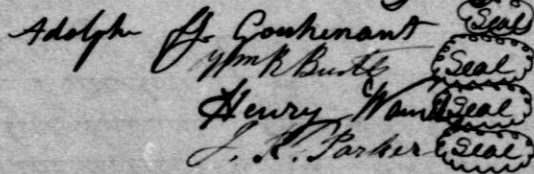 Adolph Gouhenant (Seal)
Wm R Butts (Seal)
Henry (Seal)
J. K. Parker (Seal)